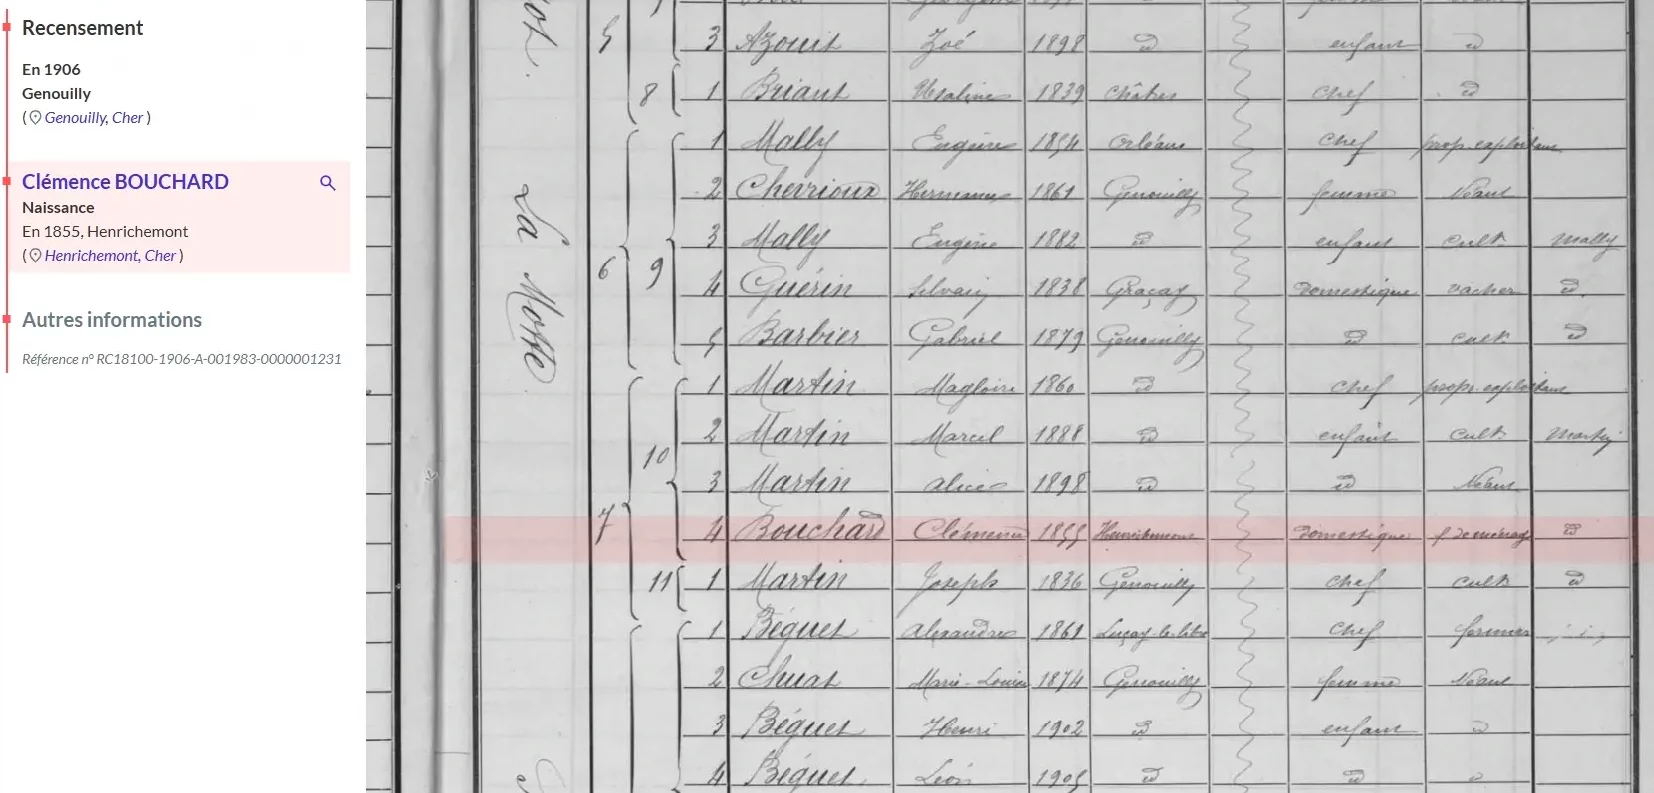 Recensement
En 1906
Genouilly
( Genouilly, Cher )
Clémence BOUCHARD
Naissance
En 1855, Henrichemont
( Henrichemont, Cher )
Autres informations
Référence n° RC18100-1906-A-001983-0000001231
5 3 Azouit Zoé 1898 d enfant d
8 1 Briant Ursaline 1839 Châtres chef d
1 Mally Eugène 1854 Orléans chef prop. exploitant
La Motte
2 Cherrioux Hermance 1861 Genouilly femme Néant
3 Mally Eugène 1882 d enfant cult. Mally
6 9 4 Guérin Silvain 1838 Graçay domestique vacher d
5 Barbier Gabriel 1879 Genouilly d cult. d
1 Martin Magloire 1860 d chef propr. exploitant
2 Martin Marcel 1888 d enfant cult. Martin
10
3 Martin Alice 1898 d d Néant
7 4 Bouchard Clémence 1855 Henrichemont domestique f. de ménage d
11 1 Martin Joseph 1836 Genouilly chef cult. d
1 Béguet Alexandre 1861 Luçay-le-libre chef fermier
2 Chuat Marie-Louise 1874 Genouilly femme Néant
3 Béguet Henri 1902 d enfant d
4 Béguet Léon 1905 d d d